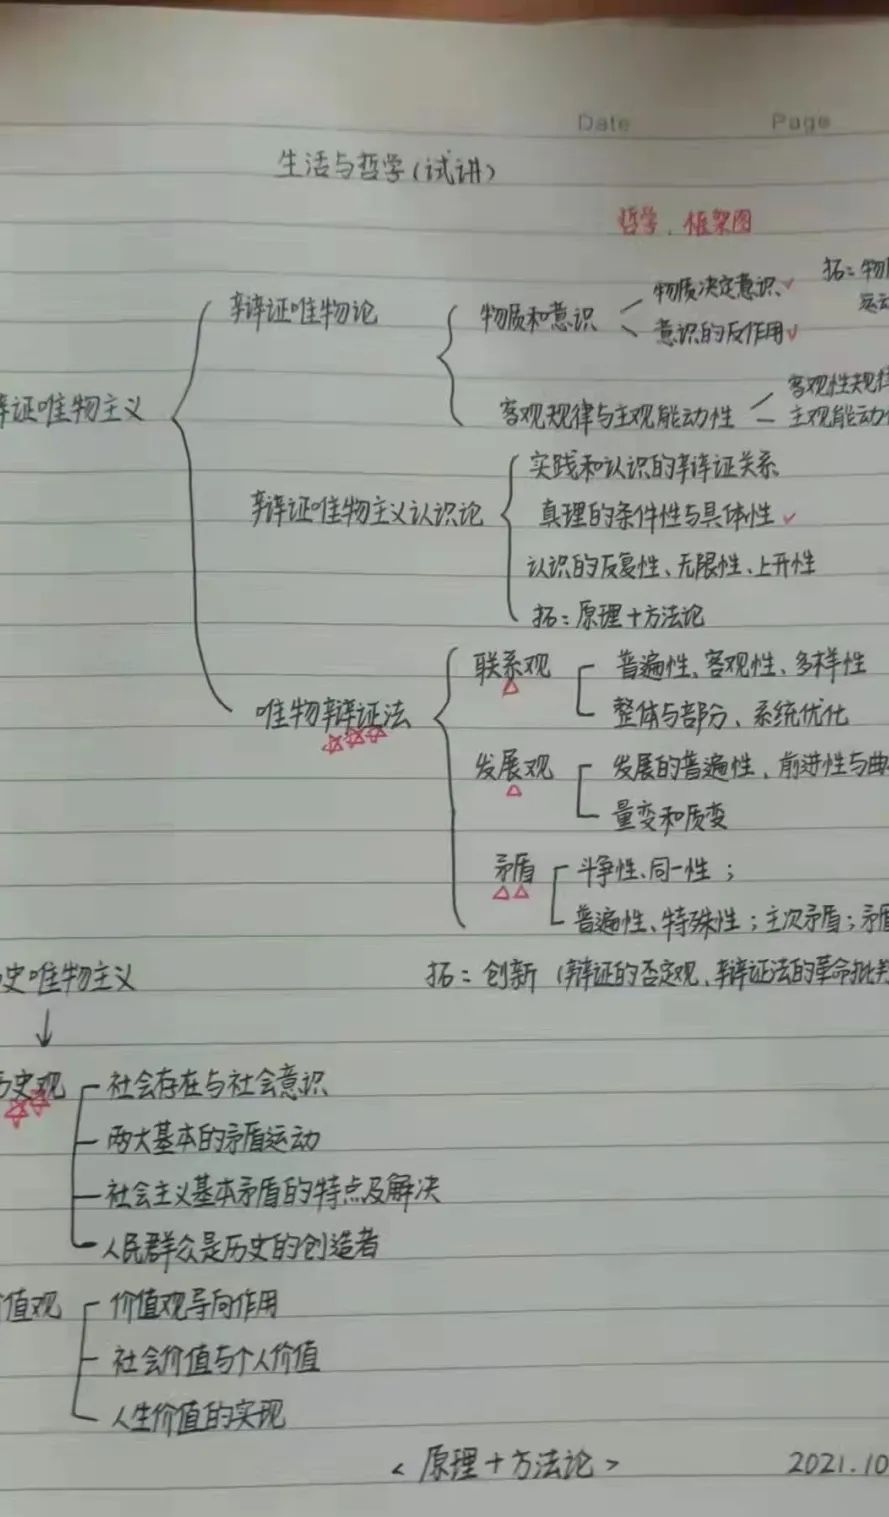 Date Page
生活与哲学(试讲)
哲学.框架图
辩证唯物论
物质和意识
物质决定意识、
意识的反作用
拓:物
运动
证唯物主义
客观规律与主观能动性
客观性规律
主观能动
辩证唯物主义认识论
实践和认识的辩证关系
真理的条件性与具体性
认识的反复性、无限性、上升性
拓:原理+方法论
唯物辩证法
联系观
普遍性、客观性、多样性
整体与部分、系统优化
发展观
发展的普遍性、前进性与曲
量变和质变
矛盾
斗争性、同一性;
普遍性、特殊性;主次矛盾;矛盾
拓:创新(辩证的否定观、辩证法的革命批判
史唯物主义
历史观
社会存在与社会意识
两大基本的矛盾运动
社会主义基本矛盾的特点及解决
人民群众是历史的创造者
值观
价值观导向作用
社会价值与个人价值
人生价值的实现
<原理+方法论>
2021.10